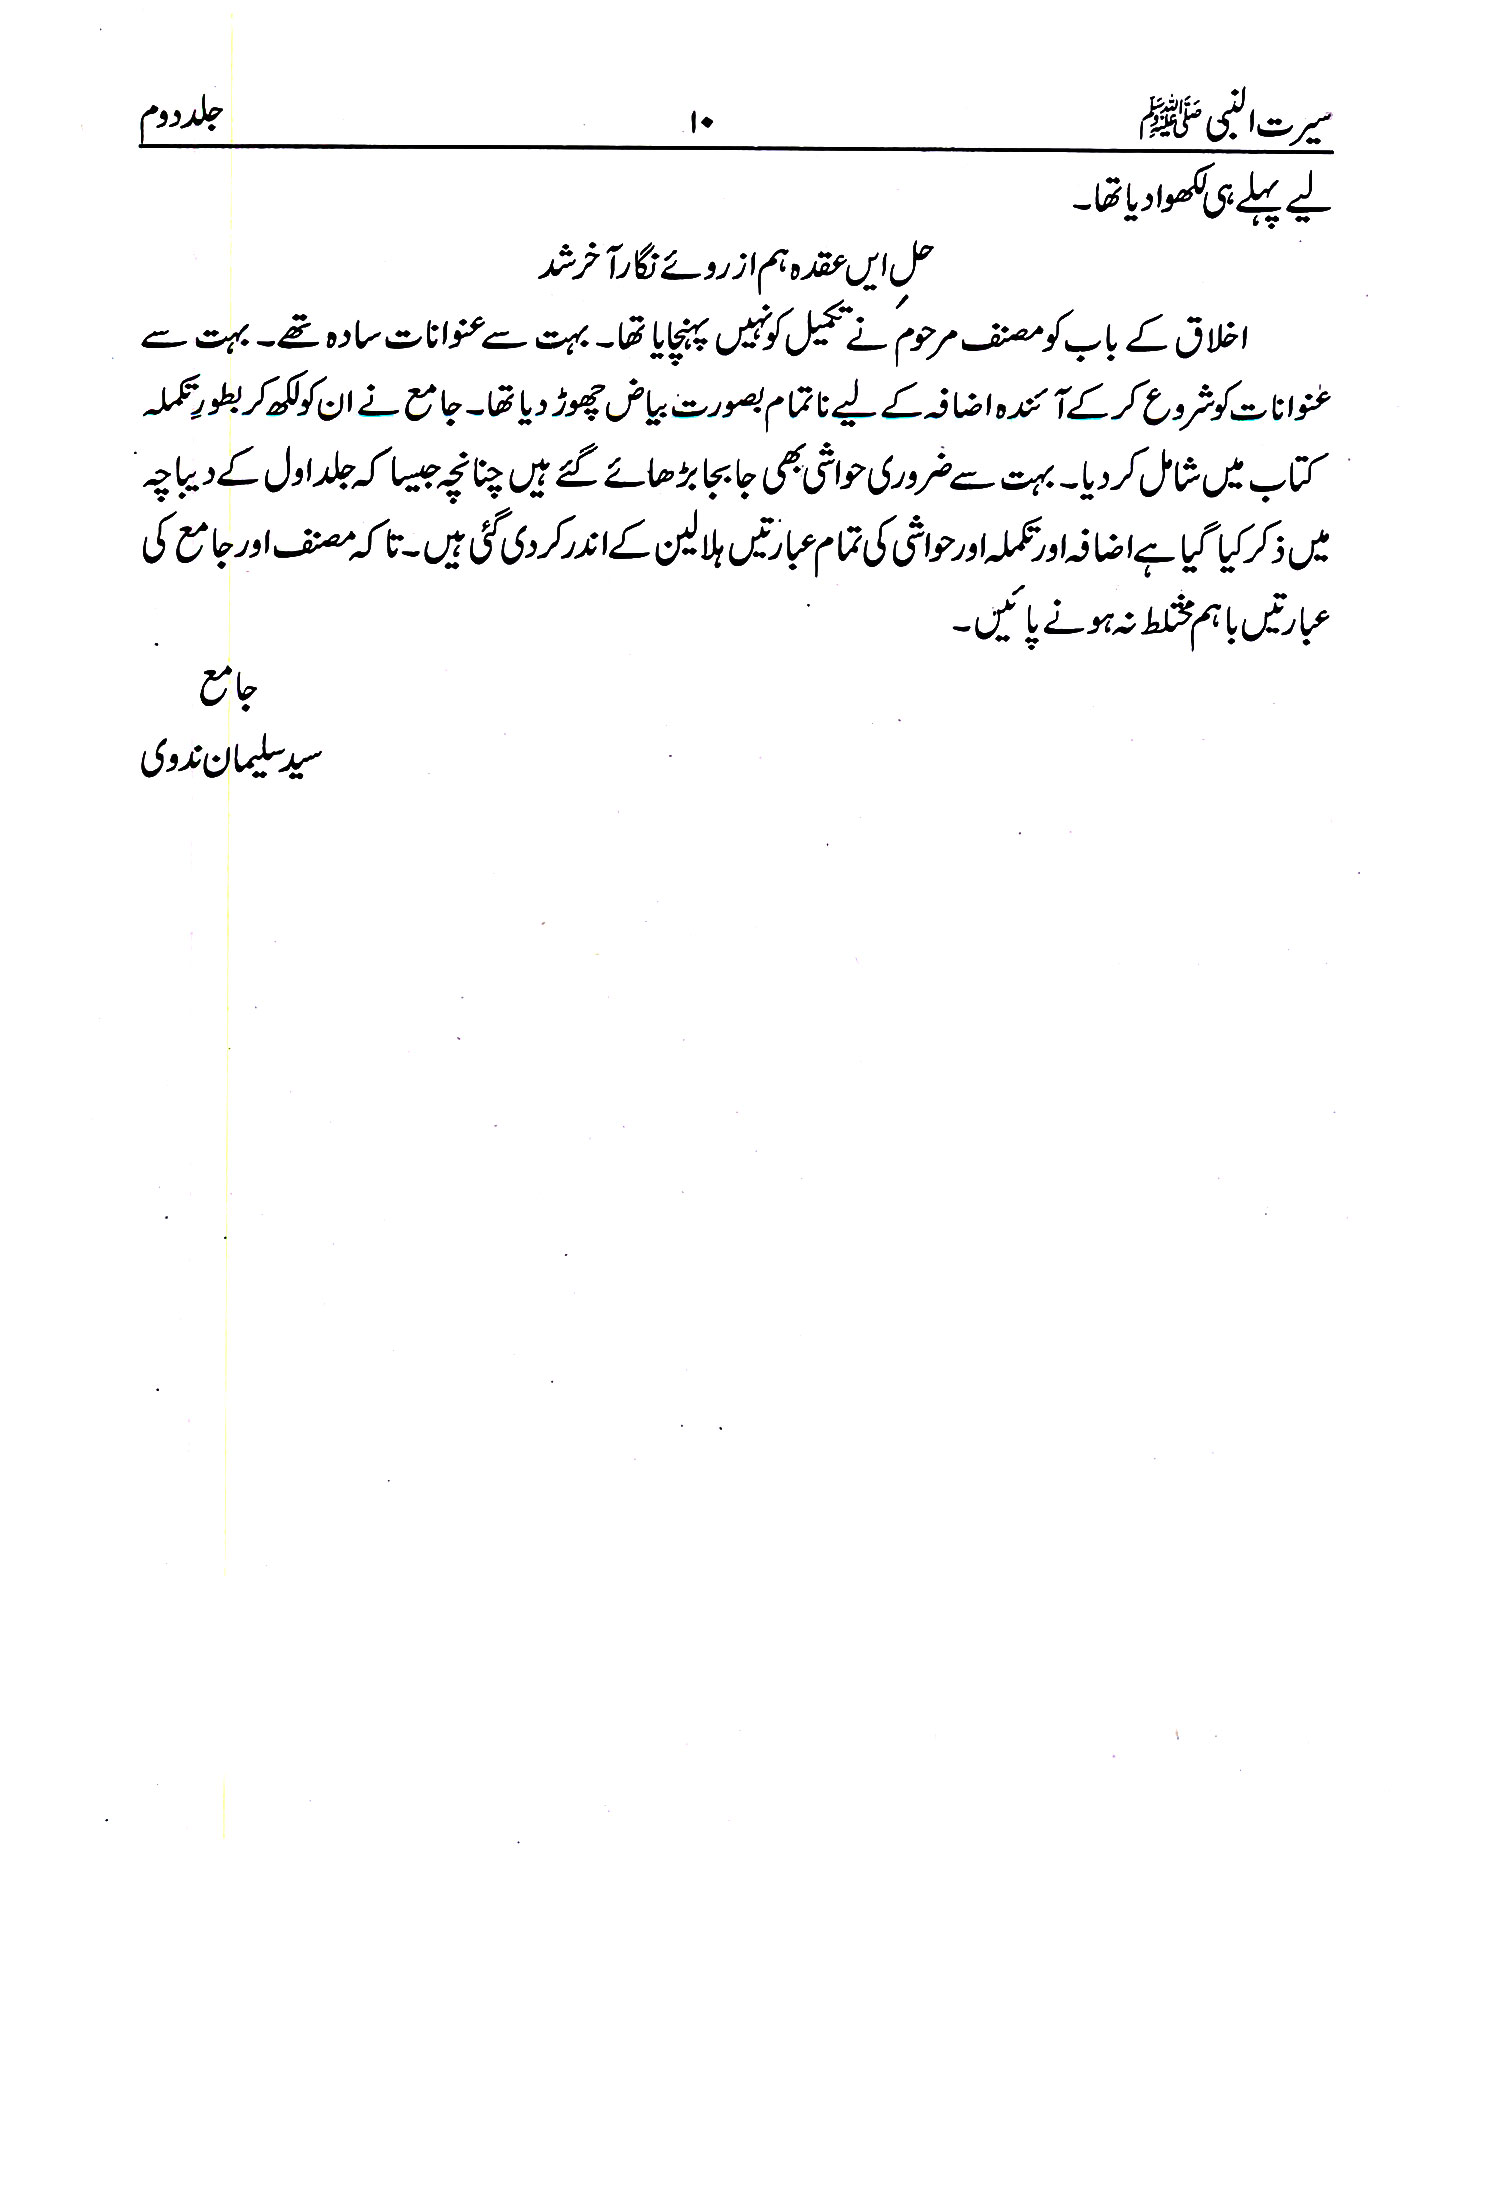 سیرت النبی ﷺ ۱۰ جلد دوم
لیے پہلے ہی لکھوا دیا تھا۔
حلِ ایں عقدہ ہم از روئے نگار آخر شد
اخلاق کے باب کو مصنف مرحوم نے تکمیل کو نہیں پہنچایا تھا۔ بہت سے عنوانات سادہ تھے۔ بہت سے
عنوانات کو شروع کر کے آئندہ اضافہ کے لیے ناتمام بصورت بیاض چھوڑ دیا تھا۔ جامع نے ان کو لکھ کر بطورِ تکملہ
کتاب میں شامل کر دیا۔ بہت سے ضروری حواشی بھی جا بجا بڑھائے گئے ہیں چنانچہ جیسا کہ جلد اول کے دیباچہ
میں ذکر کیا گیا ہے اضافہ اور تکملہ اور حواشی کی تمام عبارتیں ہلالین کے اندر کر دی گئی ہیں۔ تاکہ مصنف اور جامع کی
عبارتیں باہم مختلط نہ ہونے پائیں۔
جامع
سید سلیمان ندوی